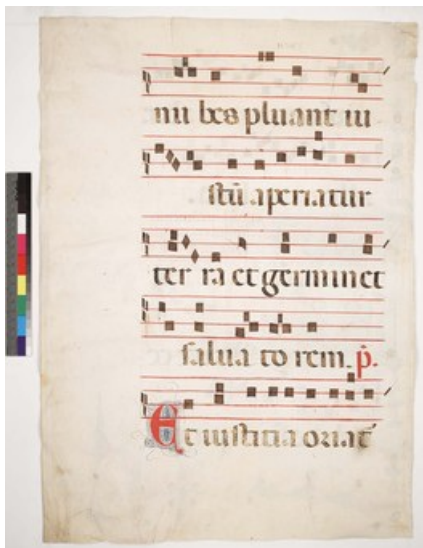 nu bes pluant iu
stū aperiatur
ter ra et germinet
salua to rem. p̄.
Et iusticia oriat᷑